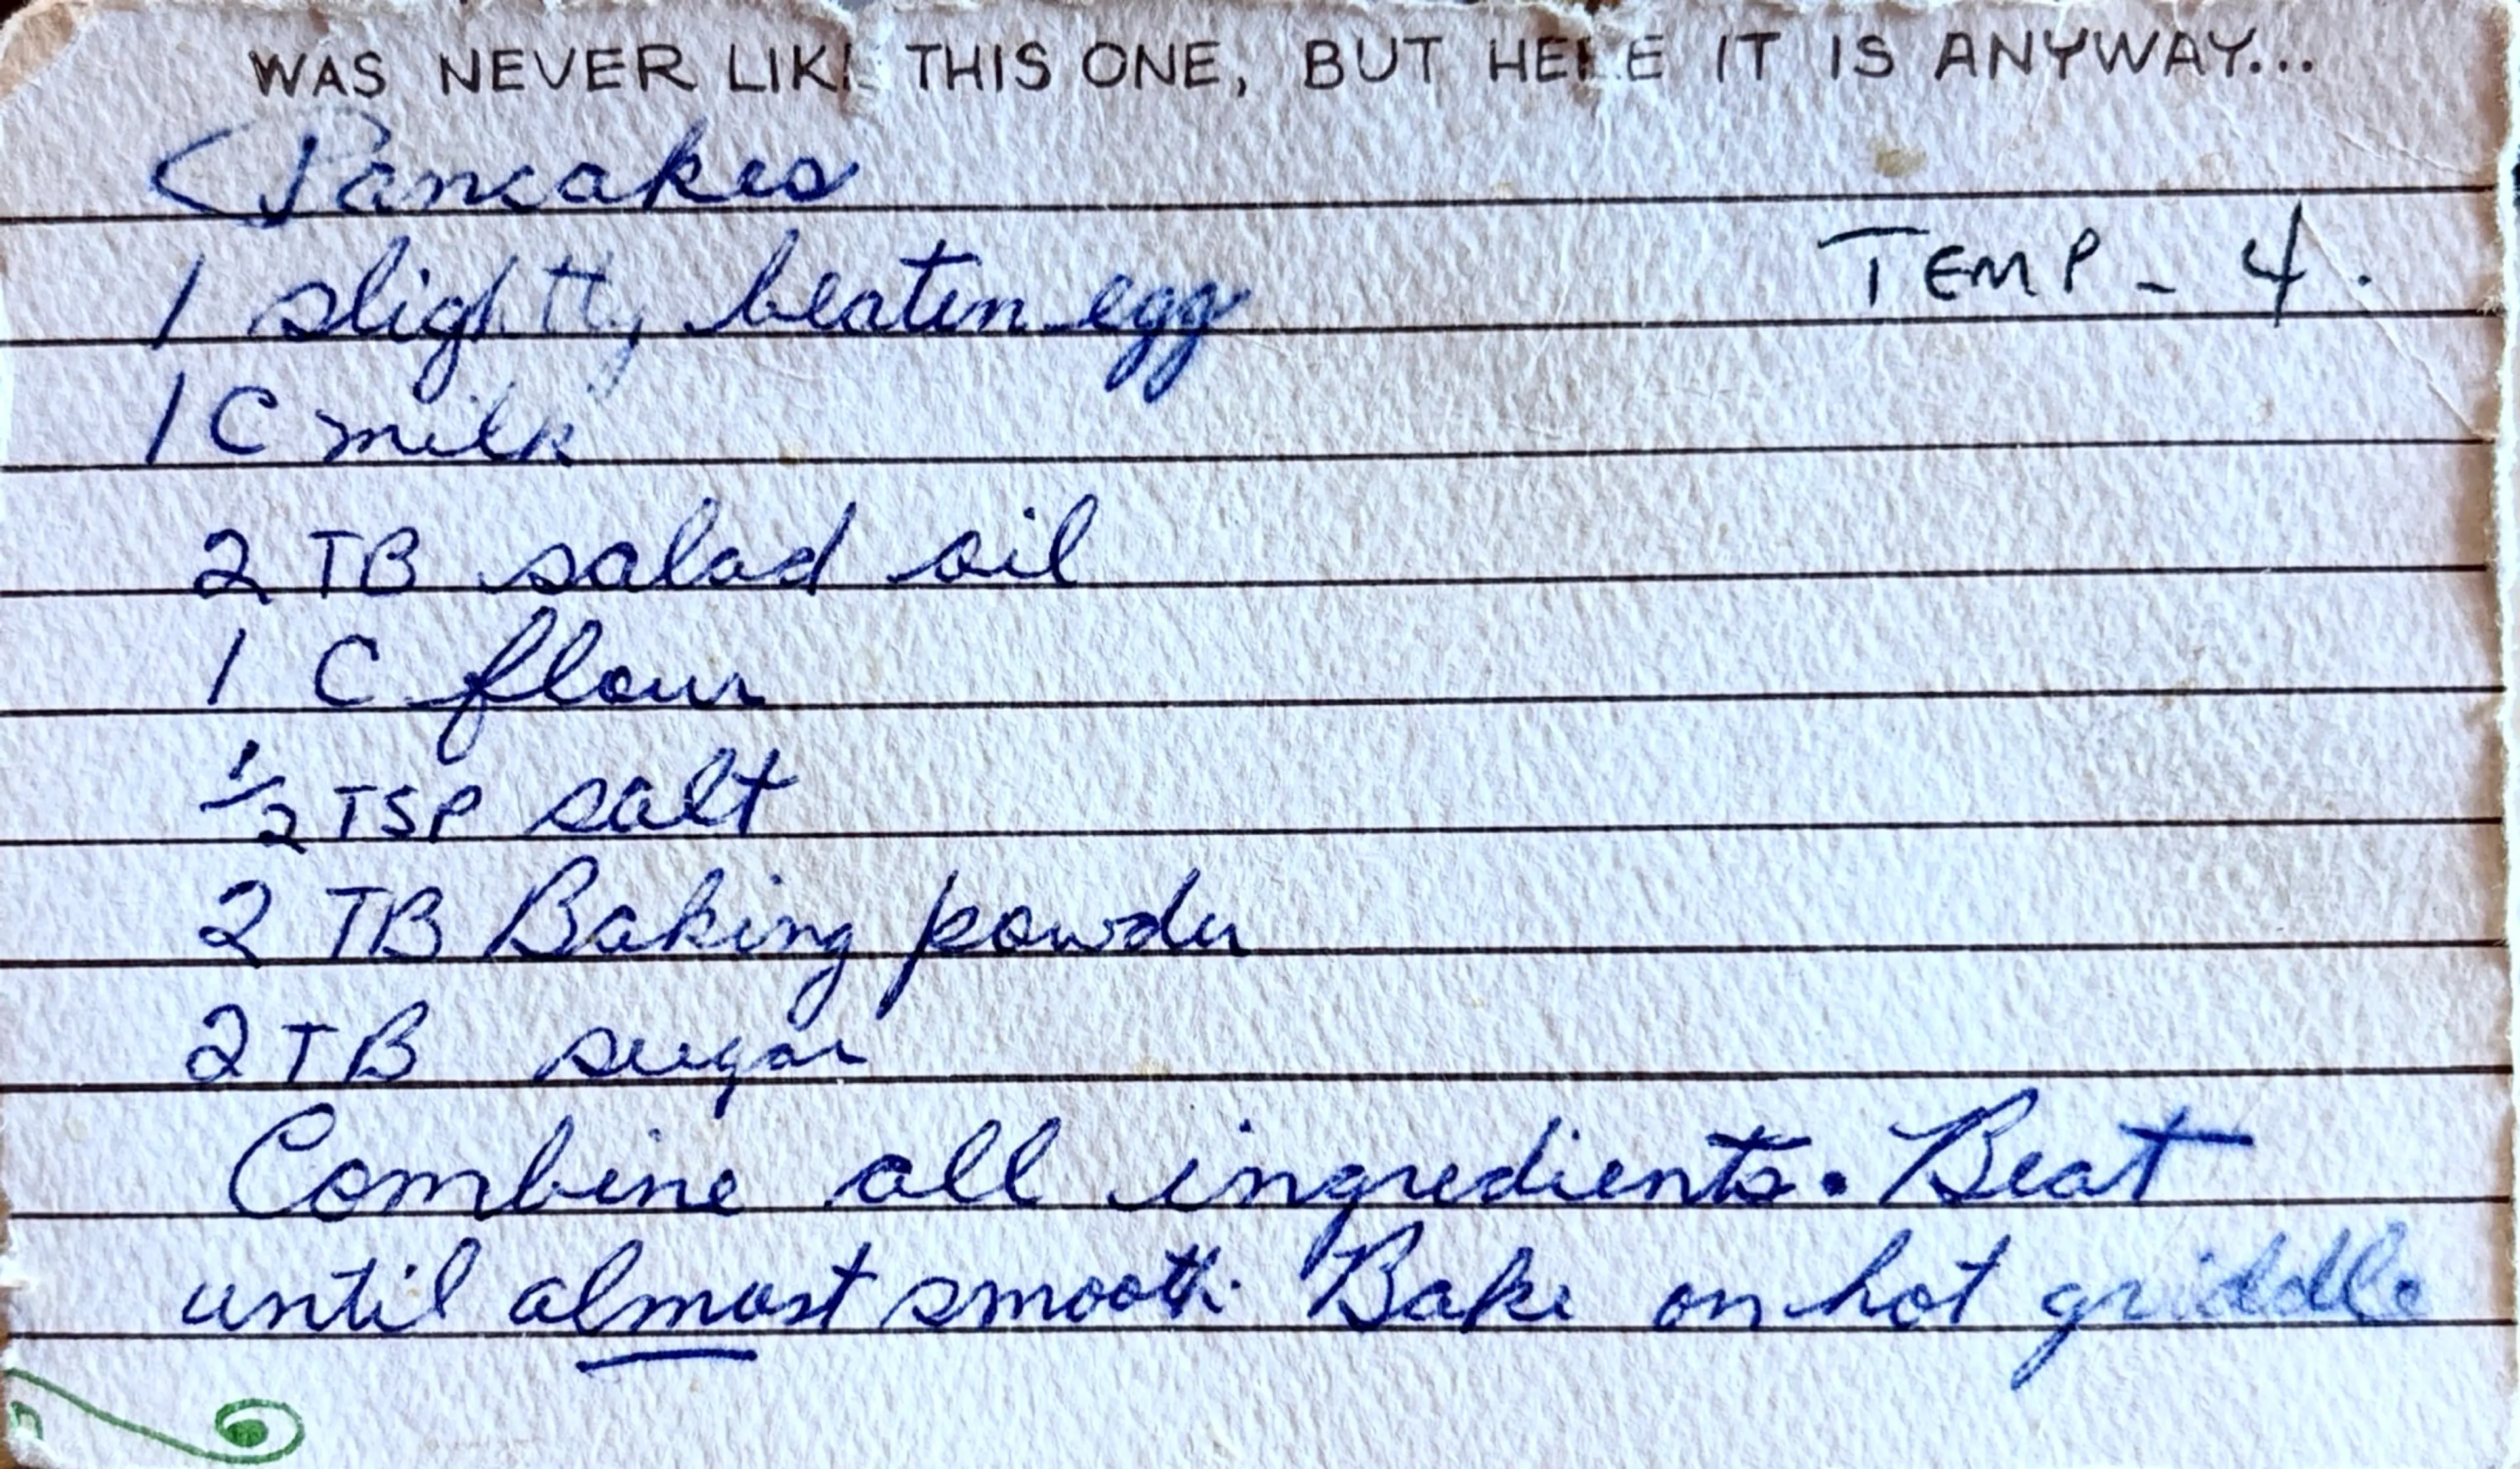 WAS NEVER LIKE THIS ONE, BUT HERE IT IS ANYWAY...
Pancakes
1 slightly beaten egg
TEMP - 4.
1 C milk
2 TB salad oil
1 C flour
1/2 TSP salt
2 TB Baking powder
2 TB sugar
Combine all ingredients. Beat
until almost smooth. Bake on hot griddle